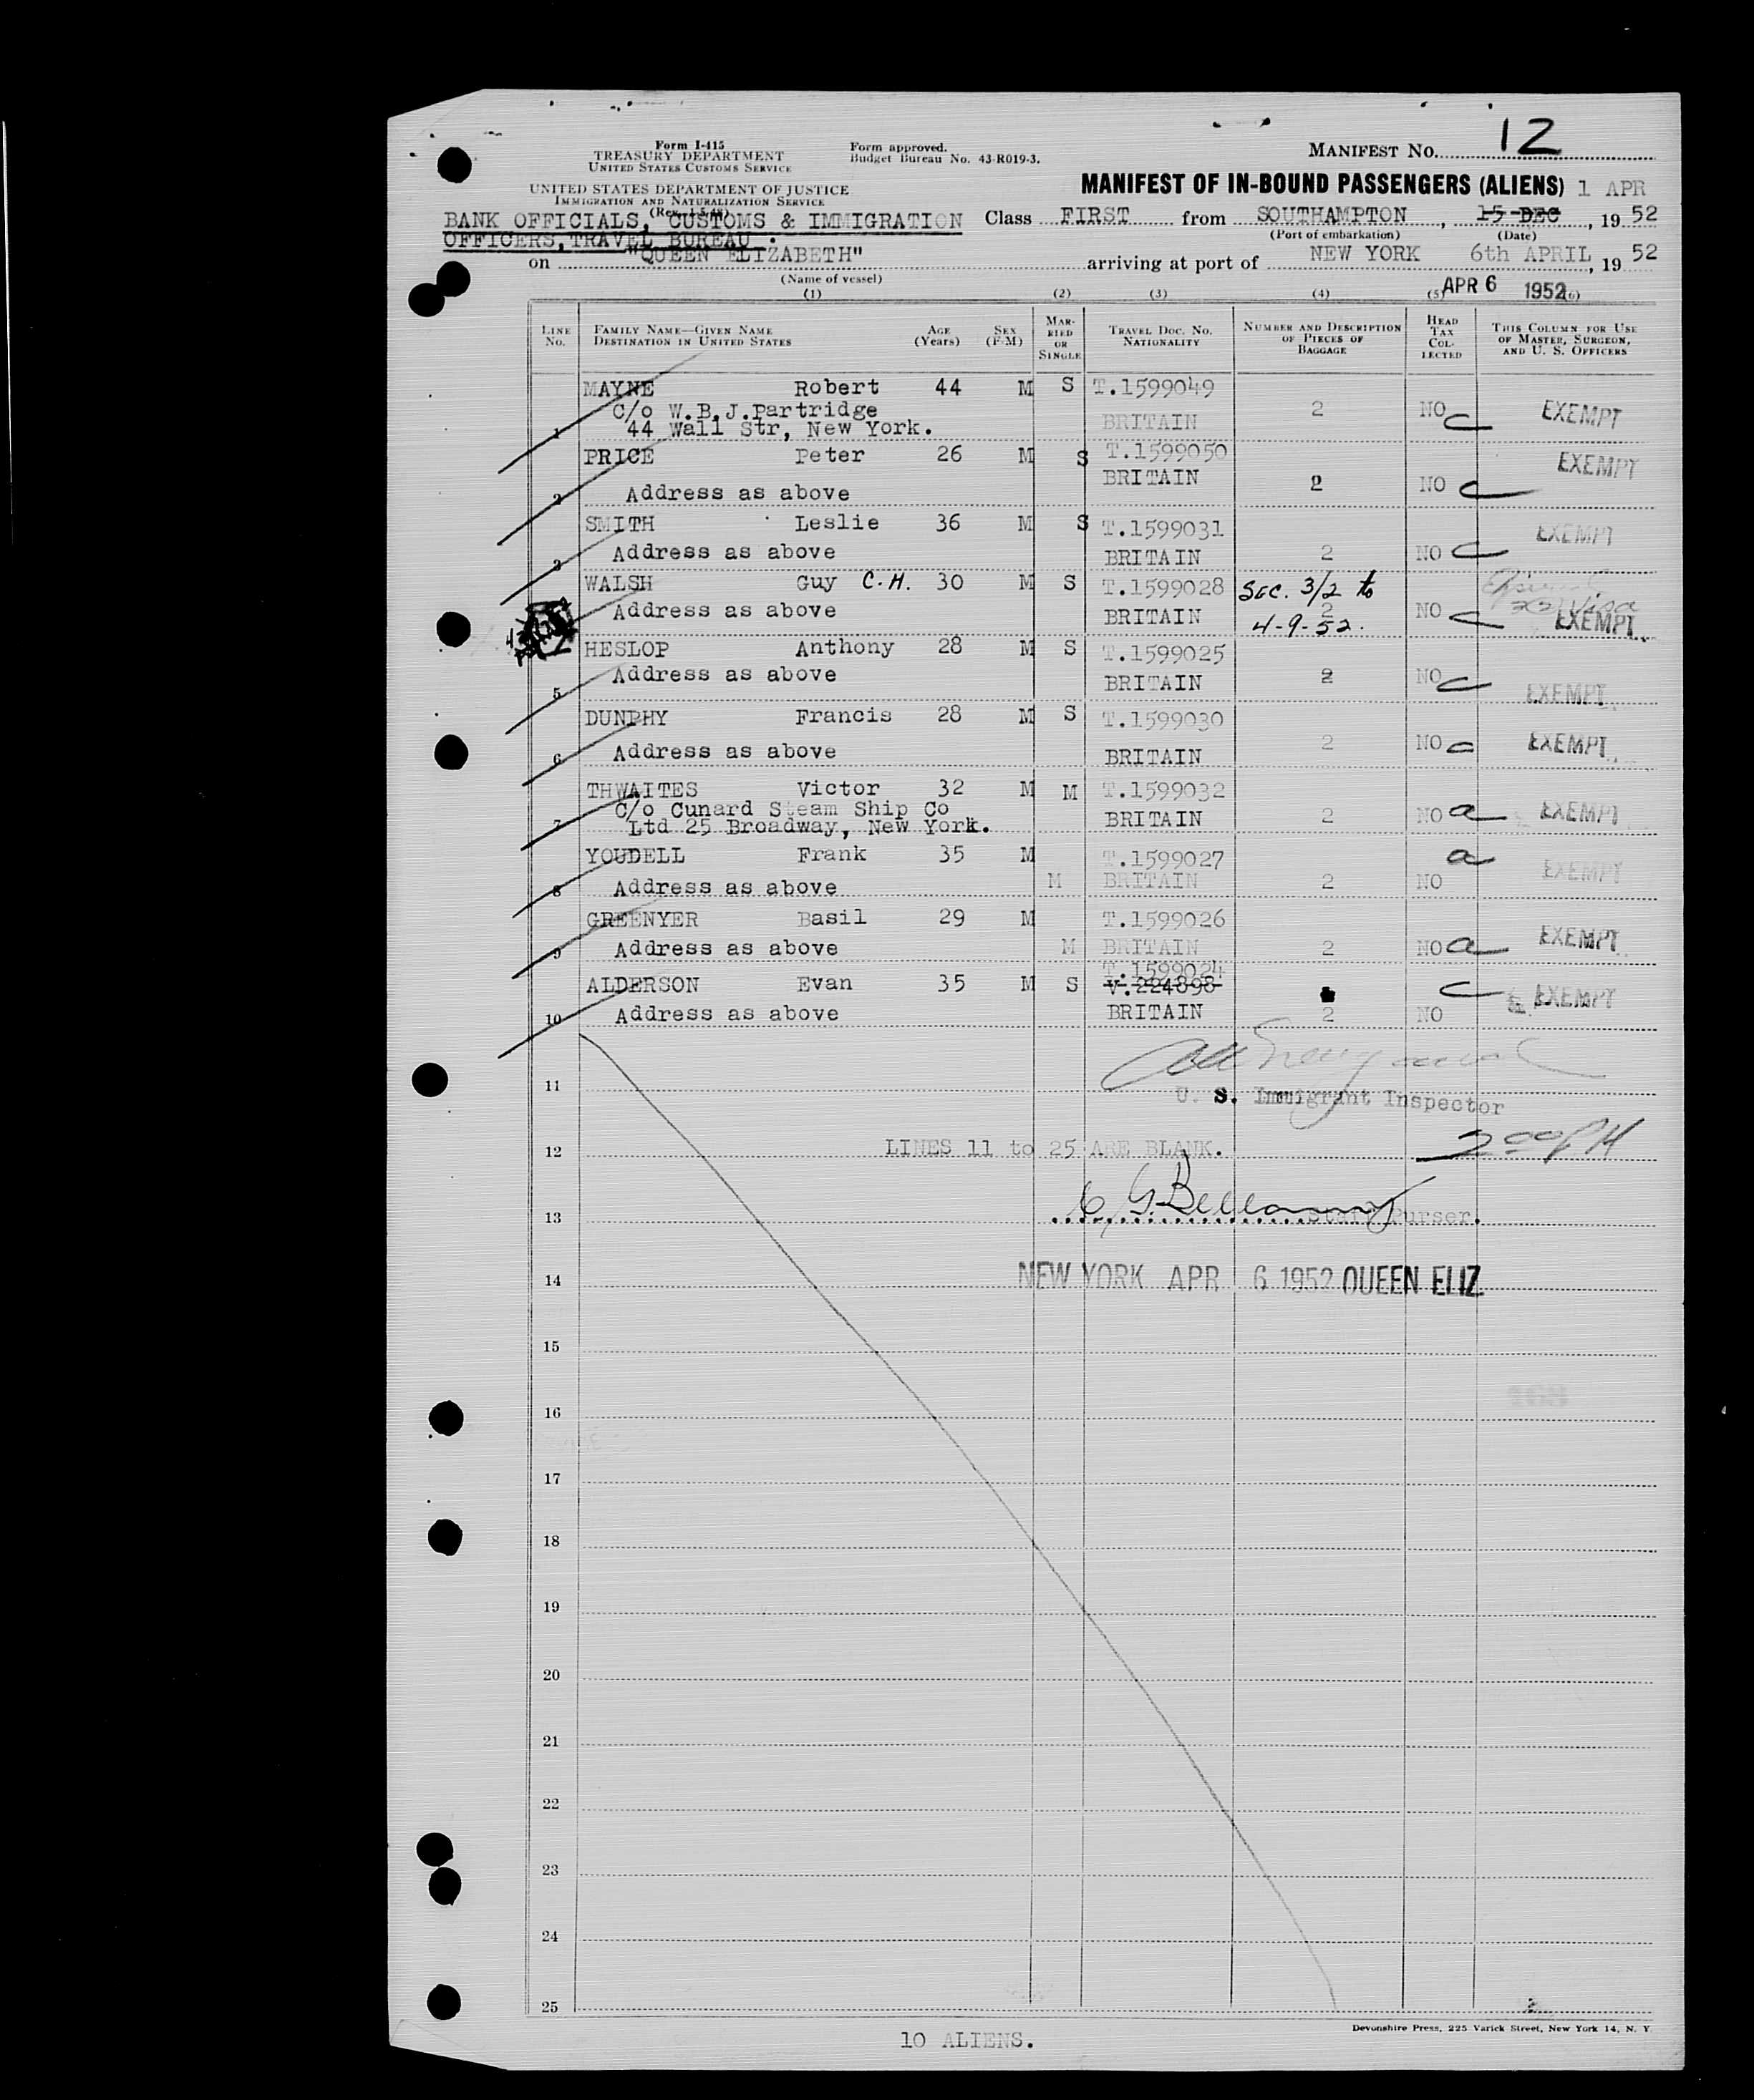 Form I-415
TREASURY DEPARTMENT
UNITED STATES CUSTOMS SERVICE
UNITED STATES DEPARTMENT OF JUSTICE
IMMIGRATION AND NATURALIZATION SERVICE
Form approved.
Budget Bureau No. 43-R019-3.
MANIFEST NO. 12
MANIFEST OF IN-BOUND PASSENGERS (ALIENS) 1 APR
BANK OFFICIALS, CUSTOMS & IMMIGRATION
OFFICERS, TRAVEL BUREAU.
Class FIRST from SOUTHAMPTON, 15 DEC, 19 52
(Port of embarkation) (Date)
on "QUEEN ELIZABETH" arriving at port of NEW YORK 6th APRIL, 19 52
(Name of vessel)
APR 6 1952
(1) (2) (3) (4) (5) (6)
LINE No. FAMILY NAME—GIVEN NAME DESTINATION IN UNITED STATES AGE (Years) SEX (F-M) MARRIED OR SINGLE TRAVEL DOC. NO. NATIONALITY NUMBER AND DESCRIPTION OF PIECES OF BAGGAGE HEAD TAX COLLECTED THIS COLUMN FOR USE OF MASTER, SURGEON, AND U. S. OFFICERS
MAYNE Robert 44 M S T.1599049
C/o W.B.J.Partridge BRITAIN 2 NO C EXEMPT
1 44 Wall Str, New York.
PRICE Peter 26 M S T.1599050 EXEMPT
BRITAIN
2 Address as above 2 NO C
SMITH Leslie 36 M S T.1599031 EXEMPT
3 Address as above BRITAIN 2 NO C
WALSH Guy C.H. 30 M S T.1599028 SEC. 3/2 to
Visa
Address as above BRITAIN 2 NO C EXEMPT
4-9-52.
HESLOP Anthony 28 M S T.1599025
5 Address as above BRITAIN 2 NO C EXEMPT
DUNPHY Francis 28 M S T.1599030
6 Address as above BRITAIN 2 NO C EXEMPT
THWAITES Victor 32 M M T.1599032
C/o Cunard Steam Ship Co
7 Ltd 25 Broadway, New York. BRITAIN 2 NO a EXEMPT
YOUDELL Frank 35 M T.1599027 a
8 Address as above M BRITAIN 2 NO EXEMPT
GREENYER Basil 29 M T.1599026
9 Address as above M BRITAIN 2 NO a EXEMPT
T.1599024
ALDERSON Evan 35 M S V.224898 C EXEMPT
10 Address as above BRITAIN 2 NO
11
U. S. Immigrant Inspector
200PM
12 LINES 11 to 25 ARE BLANK.
C. G. Bellamy
13 Staff Purser.
14 NEW YORK APR 6 1952 QUEEN ELIZ
15
16
17
18
19
20
21
22
23
24
25
Devonshire Press, 225 Varick Street, New York 14, N. Y.
10 ALIENS.